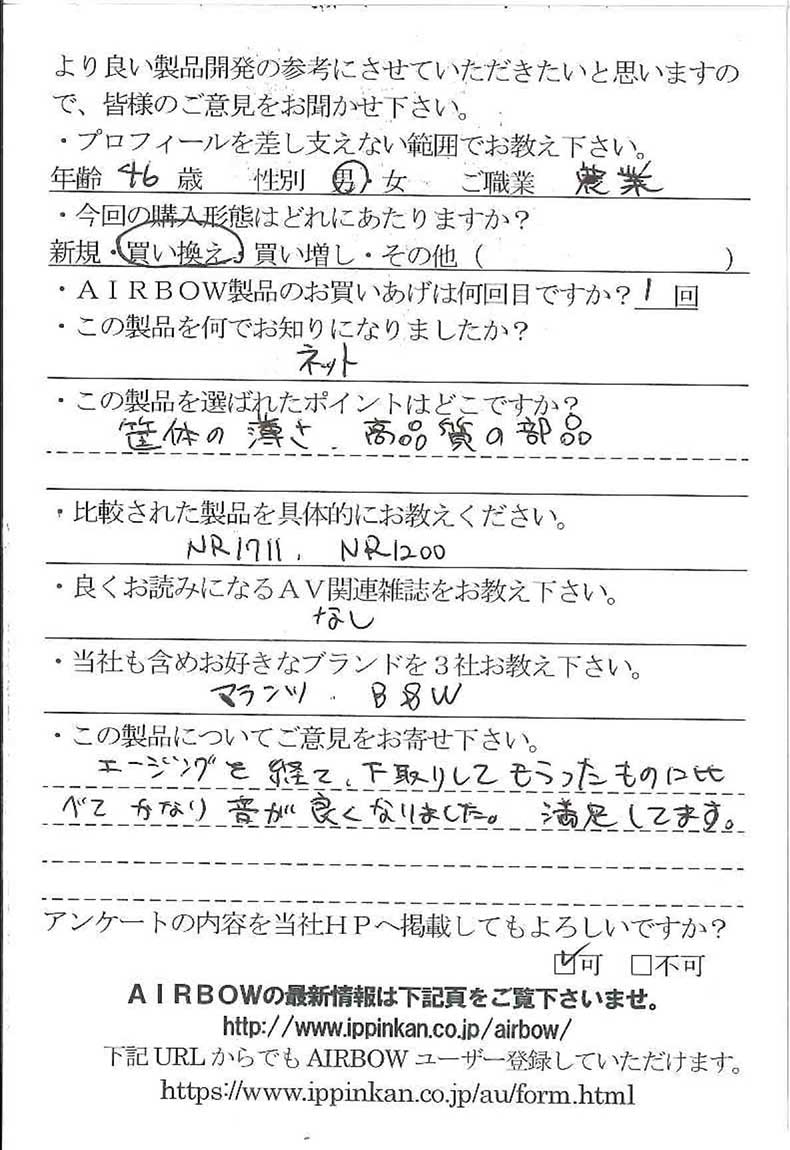 より良い製品開発の参考にさせていただきたいと思いますの
で、皆様のご意見をお聞かせ下さい。
・プロフィールを差し支えない範囲でお教え下さい。
年齢 46 歳 性別 男・女 ご職業 農業
・今回の購入形態はどれにあたりますか？
新規・買い換え・買い増し・その他（ ）
・ＡＩＲＢＯＷ製品のお買いあげは何回目ですか？ 1 回
・この製品を何でお知りになりましたか？
ネット
・この製品を選ばれたポイントはどこですか？
筐体の薄さ、高品質の部品
・比較された製品を具体的にお教えください。
NR1711、NR1200
・良くお読みになるＡＶ関連雑誌をお教え下さい。
なし
・当社も含めお好きなブランドを３社お教え下さい。
マランツ、B&W
・この製品についてご意見をお寄せ下さい。
エージングを経て、下取りしてもらったものに比
べてかなり音が良くなりました。満足してます。
アンケートの内容を当社ＨＰへ掲載してもよろしいですか？
☑可 □不可
ＡＩＲＢＯＷの最新情報は下記頁をご覧下さいませ。
http://www.ippinkan.co.jp/airbow/
下記 URL からでも AIRBOW ユーザー登録していただけます。
https://www.ippinkan.co.jp/au/form.html